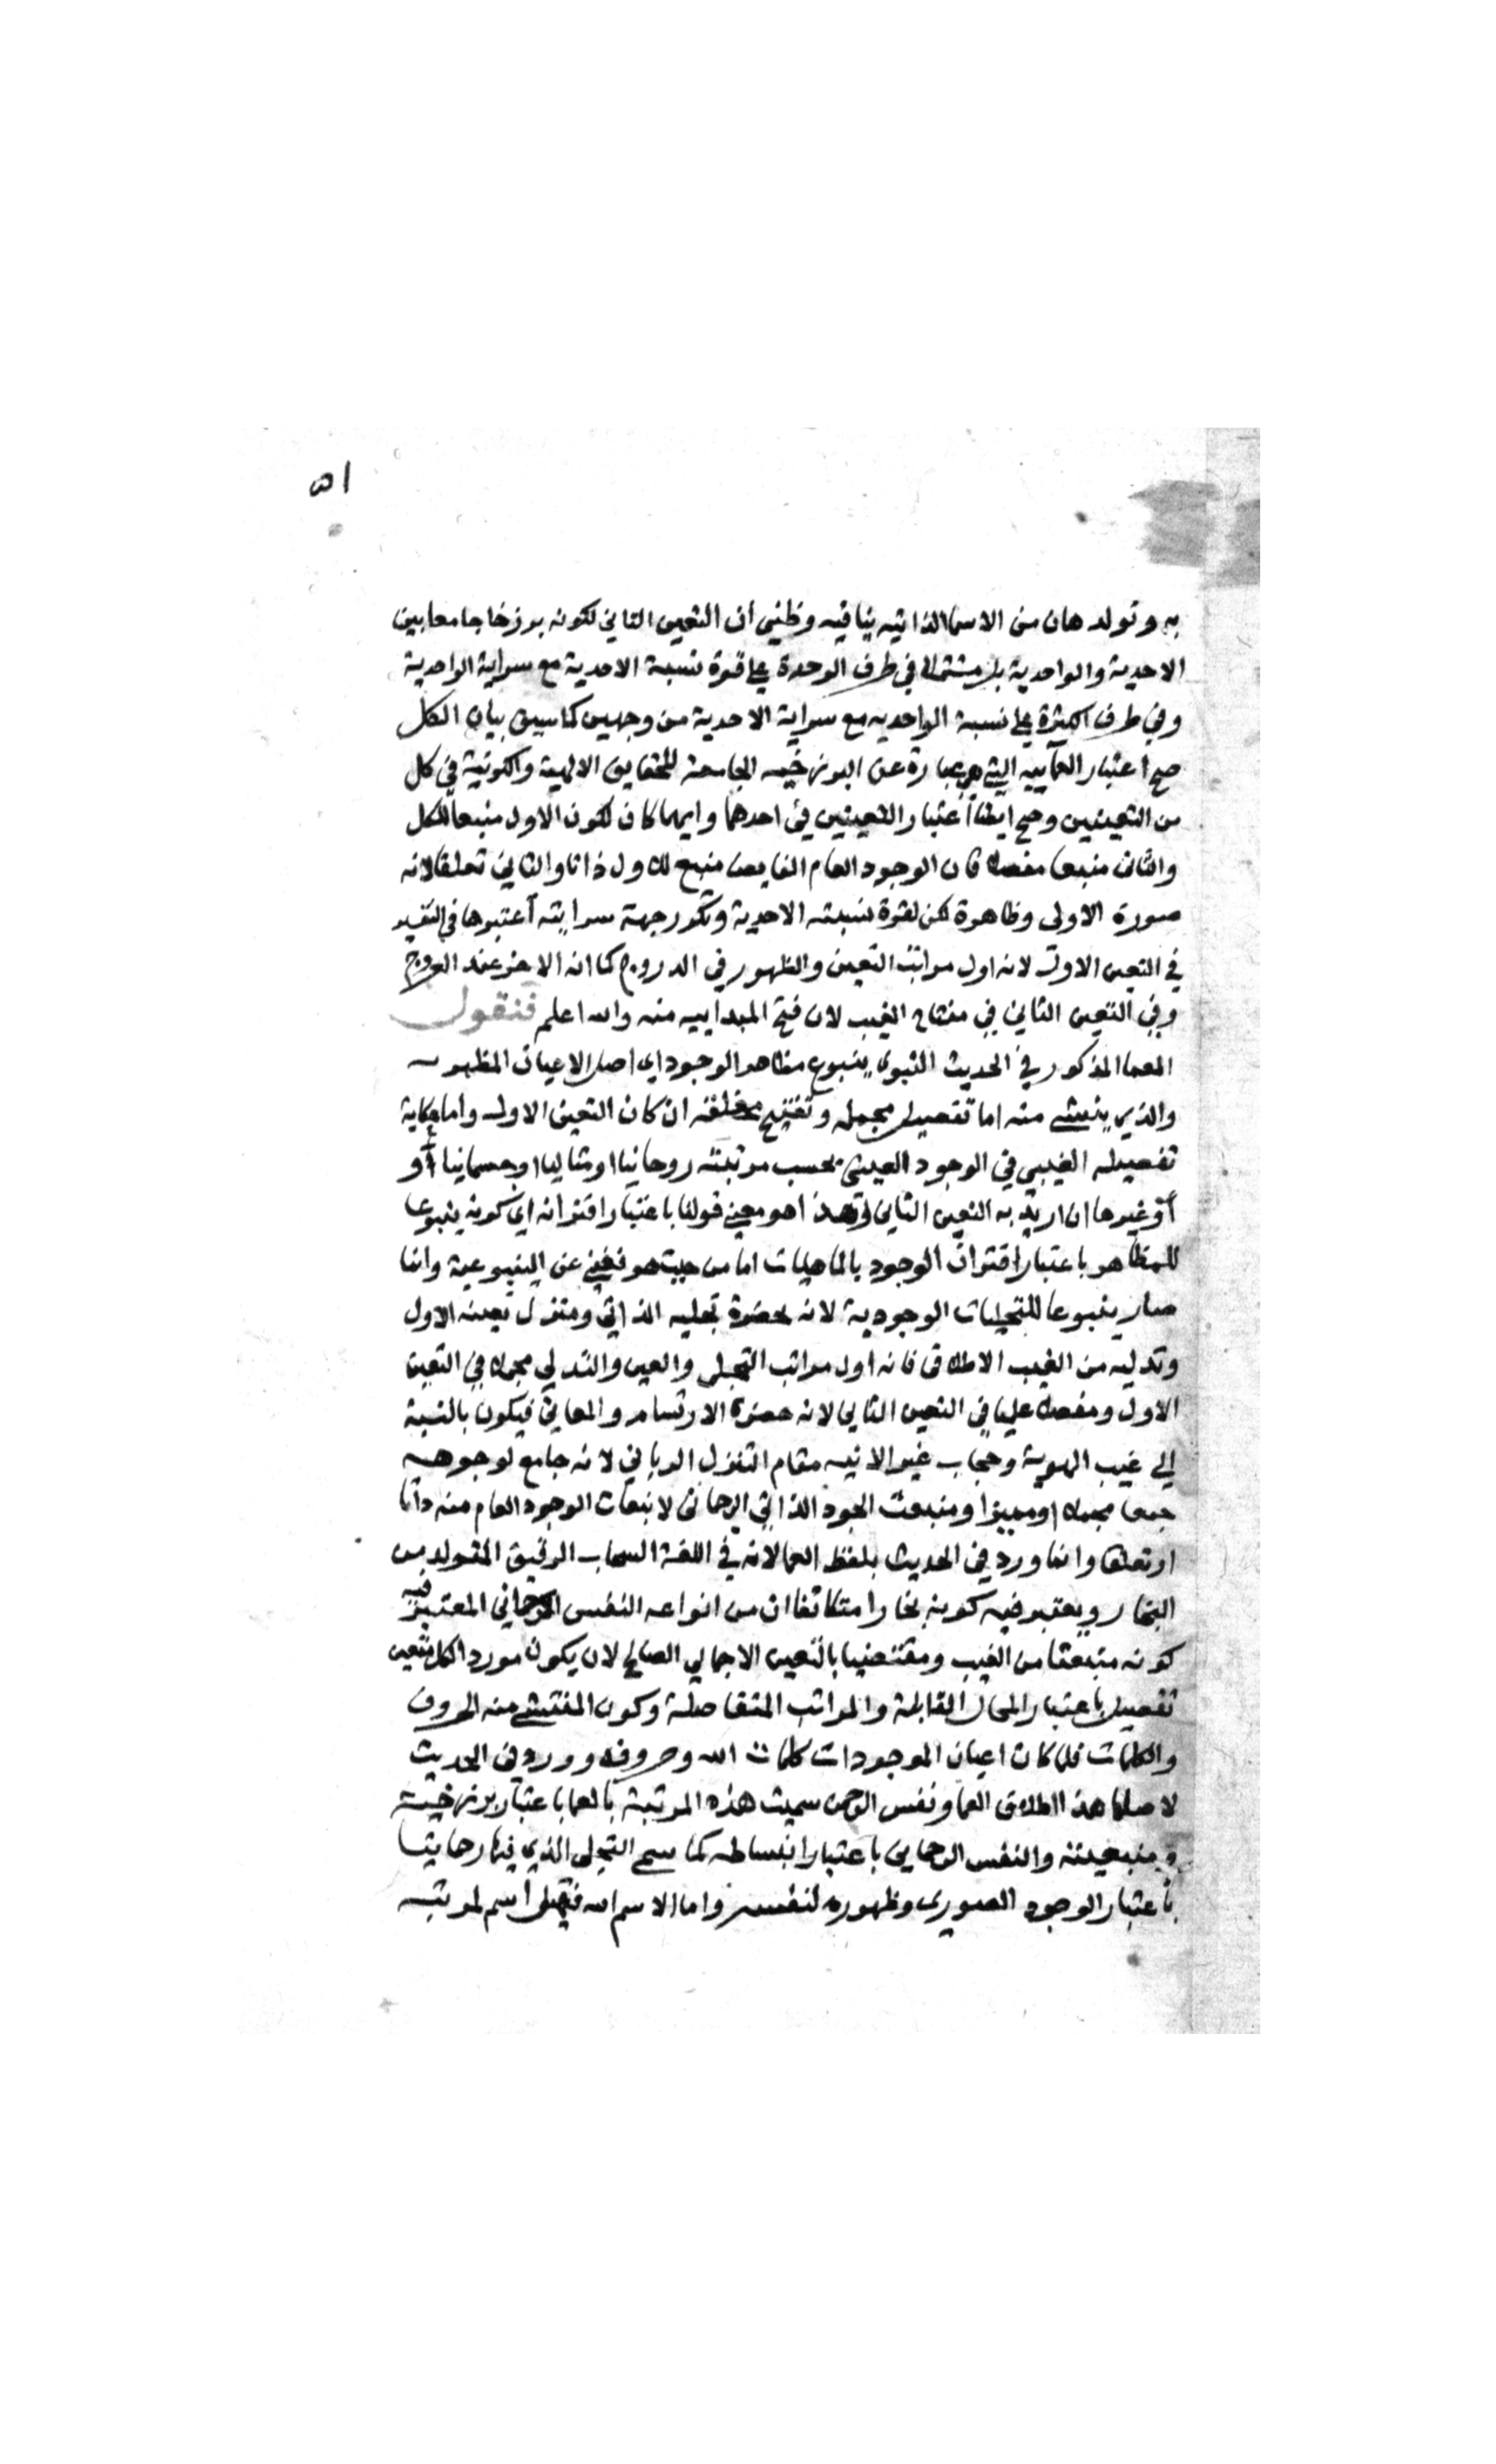 ٥١
به وتولدهان من الاسما الذاتيه ينافيه وظني ان التعين الثاني لكونه برزخا جامعا بين
الاحدية والواحدية بل مشتملا في طرف الوحدة على قوة نسبة الاحدية مع سراية الواحدية
وفي طرف الكثرة على نسبة الواحديه مع سراية الاحدية من وجهين كما سيق بيان الكل
صح اعتبار العمآييه التي هي عبارة عن البرزخيه الجامعة للحقايق الالهية والكونية في كل
من التعينين وصح ايضا اعتبار التعينين في احدهما وايهما كان لكون الاول منبعا للكل
والثاني منبعا مفصلا فان الوجود العام الفايض منبع للاول ذاتا والثاني تعلقا لانه
صورة الاولى وظاهرة لكن لقوة نسبته الاحدية وتكرر جهة سرايته اعتبروها في
في التعين الاول لانه اول مراتب التعين والظهور في الدروج كما انه الاخر عند العروج
وفي التعين الثاني في مفتاح الغيب لان فتح المبداييه منه والله اعلم فنقول
العما المذكور في الحديث النبوي ينبوع مظاهر الوجود اي اصل الاعيان المظهرية
والذي ينتشي منه اما تفصيل مجمله وتفتيح مغلقه ان كان التعين الاول واما حكاية
تفصيله الغيبي في الوجود العيني بحسب مرتبته روحانيا او مثاليا او جسمانيا او
او غيرها ان اريد به التعين الثاني وهذا هو معنى قولنا باعتبار اقترانه اي كونه ينبوعا
للمظاهر باعتبار اقتران الوجود بالماهيات اما من حيث هو فغني عن الينبوعية وانما
صار ينبوعا للتجليات الوجودية لانه حضرة تجليه الذاتي ومتنزل تعينه الاول
وتدليه من الغيب الاطلاقي فانه اول مراتب التجلي والعين والتدلي مجملا في التعين
الاول ومفصلا علميا في التعين الثاني لانه حضرة الارتسام والمعاني فيكون بالنسبة
الى غيب الهوية وحجاب غير الانيه مقام التنزل الرباني لانه جامع لوجوهه
جمعا مجملا او مميزا ومنبعث الجود الذاتي الرحماني لانبعاث الوجود العام منه ذاتا
او تعلقا وانما ورد في الحديث بلفظ العما لانه في اللغة السحاب الرقيق المتولد من
البخار ويعتبر فيه كونه بخارا متكاثفا ان من انواعه النفس الرحماني المعتبر فيه
كونه منبعثا من الغيب ومقتضيا بالتعين الاجمالي الصالح لان يكون موردا لكل تعين
تفصيل باعتبار المحال القابلة والمراتب المتفاصلة وكون المنتشي منه الحروف
والكلمات فلما كان اعيان الموجودات كلمات الله وحروفه وورد في الحديث
لاصلها هذا اطلاق العما ونفس الرحمن سميت هذه المرتبة بالعما باعتبار برزخيته
ومنبعيته والنفس الرحماني باعتبار انبساطه كما سمي التجلي الذي فيها رحمانيا
باعتبار الوجود الصوري وظهوره لنفسه واما الاسم الله فقيل اسم لمرتبته